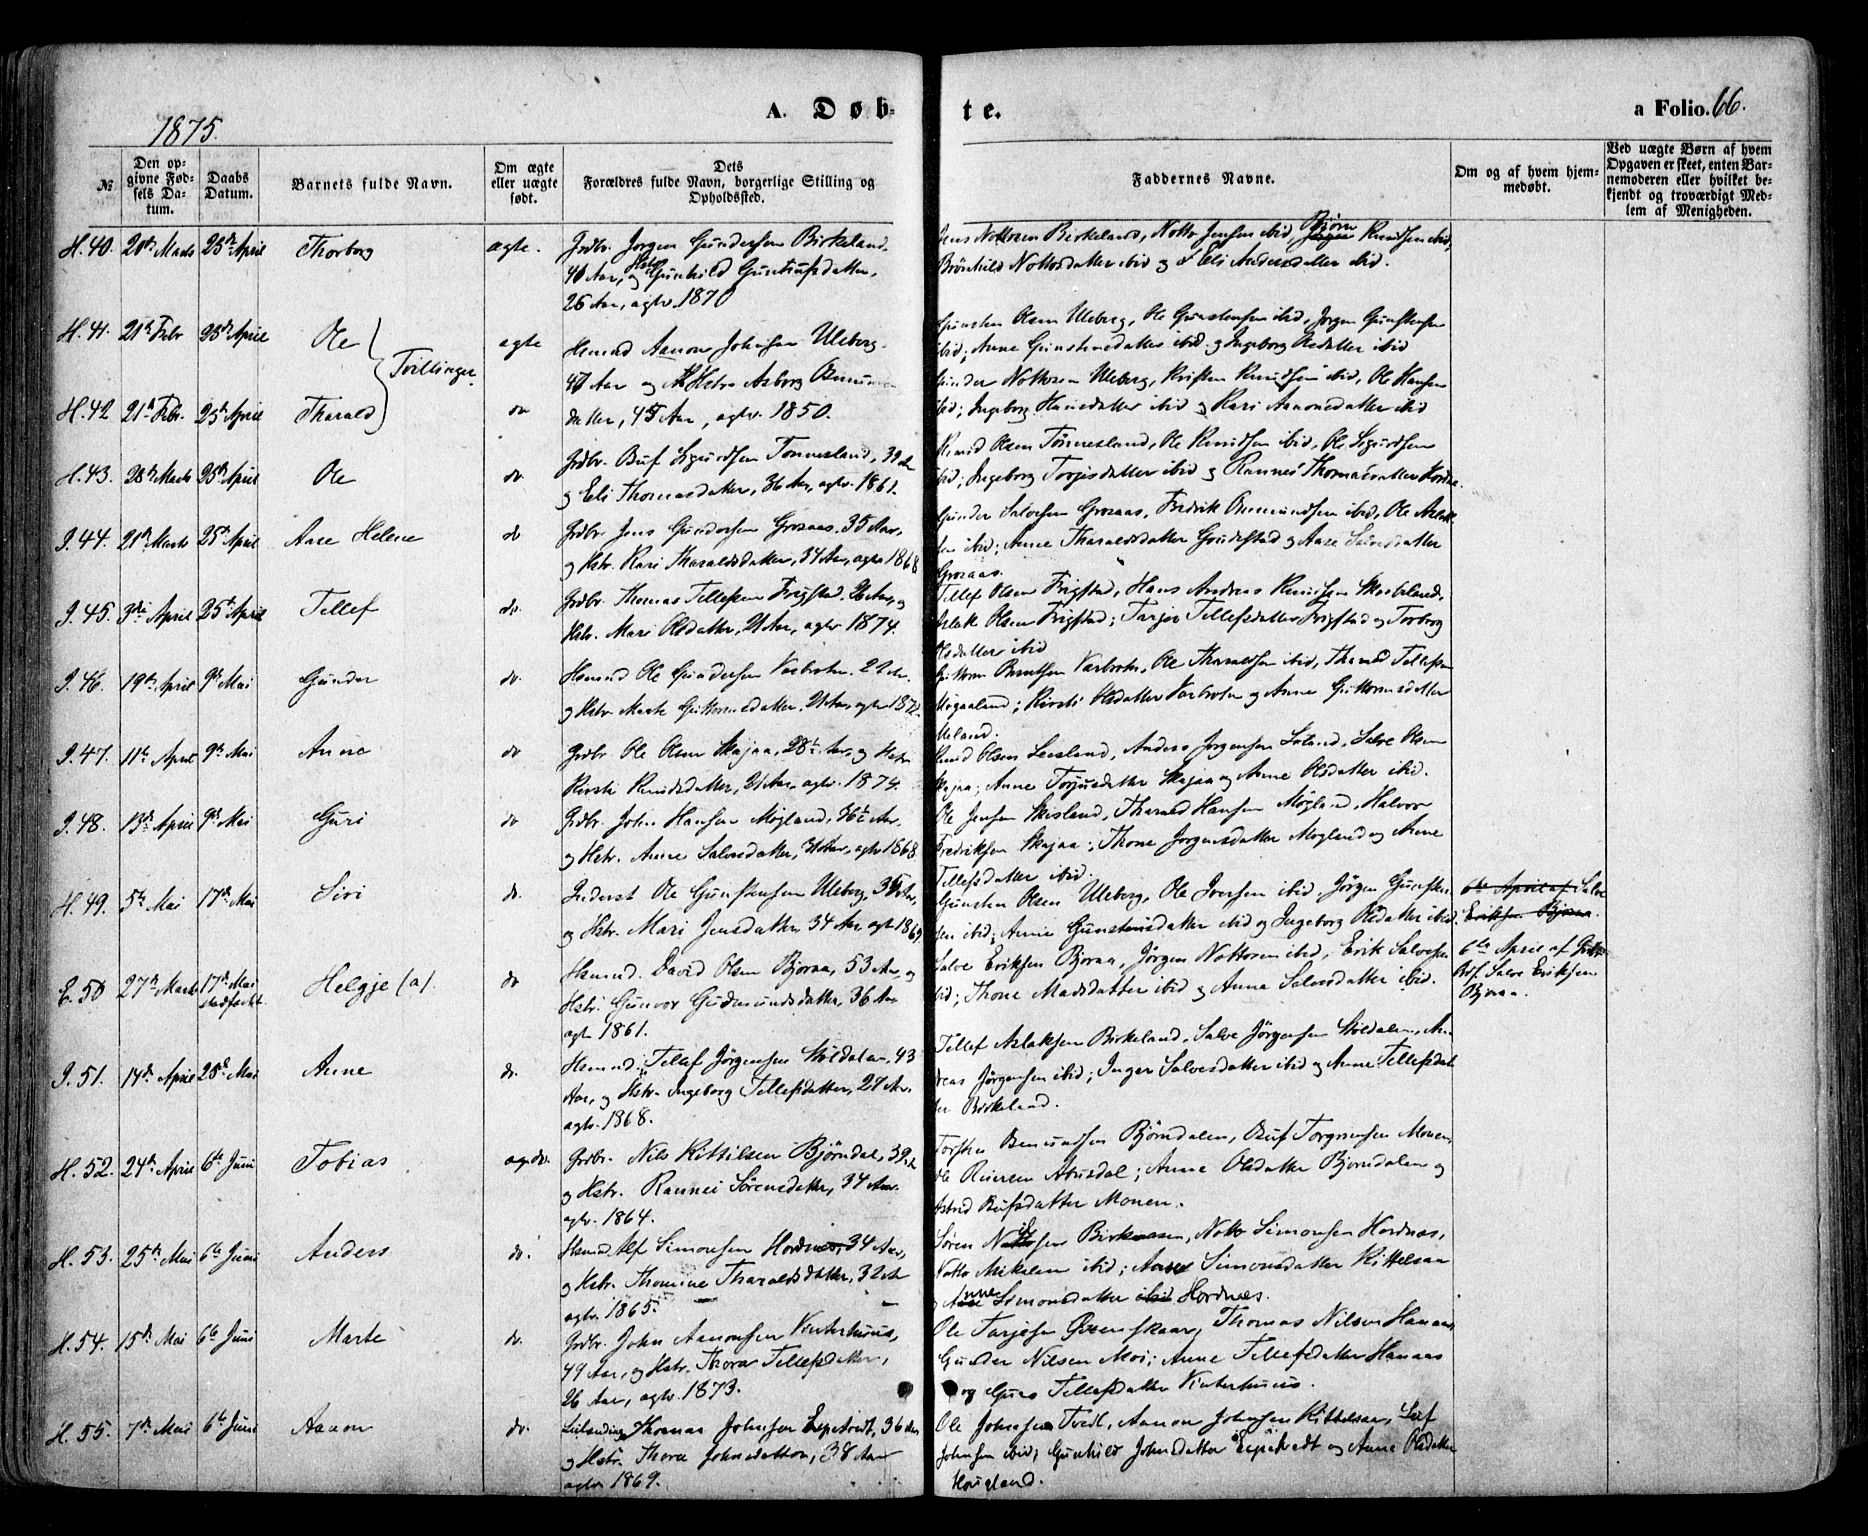 1875.
A. Døb-
te.
a Folio. 66.
№
Den op-
givne Fød-
sels Da-
tum.
Daabs
Datum.
Barnets fulde Navn.
Om ægte
eller uægte
født.
Dets
Forældres fulde Navn, borgerlige Stilling og
Opholdssted.
Faddernes Navne.
Om og af hvem hjem-
medøbt.
Ved uægte Børn af hvem
Opgaven er skeet, enten Bar-
nemoderen eller hvilket be-
kjendt og troværdigt Med-
lem af Menigheden.
H. 40. 20de Marts 25de April Thorborg ægte. Grdbr. Jørgen Gundersen Birkeland,
40 Aar, og Hstr Gunhild Guttufsdatter,
26 Aar, agtv. 1870
Jens Nottosen Birkeland, Notto Jensen ibid, Bjørn Knudsen ibid,
Brønhild Nottosdatter ibid og Eli Andersdatter ibid.
H. 41. 21de Febr 25de April Ole Tvillinger. ægte Hsmnd Aanon Johnsen Uleberg,
47 Aar og Hstr Asborg
H. 42 21de Febr. 25de April Tharald do datter, 45 Aar, agtv. 1850.
Gunsten Olsen Uleberg, Ole Gunstensen ibid, Jørgen Gunstensen
ibid; Anne Gunstensdatter ibid og Ingeborg Olsdatter ibid
Gunder Nottosen Uleberg, Kristen Knudsen ibid, Ole Hansen
ibid; Ingeborg Hansdatter ibid og Kari Aanonsdatter ibid
H. 43. 28de Marts 25de April Ole do Grdbr. Buf Sigurdsen Tønnesland, 39 Aar
og Eli Thomasdatter, 36 Aar, agtv. 1861.
Knud Olsen Tønnesland, Ole Knudsen ibid, Ole Sigurdsen
ibid; Ingeborg Torjisdatter ibid og Rannei Thomasdatter
I. 44. 21de Marts 25de April Aase Helene do Grdbr. Jens Gundersen Grosaas, 35 Aar,
og Hstr. Kari Tharaldsdatter, 34 Aar, agtv 1868
Gunder Salvesen Grosaas, Fredrik Omundsen ibid, Ole Aslak-
sen ibid; Anne Tharaldsdatter og Aase Salvesdatter
Grosaas.
I. 45. 3die April 25de April Tellef do. Grdbr. Thomas Tellefsen Frigstad, 26 Aar, og
Hstr. Mari Olsdatter, 21 Aar, agtv 1874.
Tellef Olsen Frigstad, Hans Andreas Knudsen
Aslak Olsen Frigstad; Tarjer Tellefsdatter Frigstad og Torborg
Olsdatter ibid
I. 46. 19de April 9de Mai Gunder do. Hsmnd Ole Gundersen Varbroten, 22 Aar
og Hstr Marte Guttormsdatter, 21 Aar, agtv 1872.
Guttorm Varbroten, Ole Tharaldsen ibid, Tharald Tellefsen
; Kirsti Olsdatter Varbroten og Anne Guttormsdatter
I. 47. 11te April 9de Mai Anne do Grdbr. Ole Olsen Skajaa, 28 Aar, og Hstr
Kirsti Knudsdatter, 21 Aar, agtv. 1874.
Knud Olsen Leesland, Anders Jørgensen Søland, Salve Olsen
Skajaa; Anne Torjusdatter Skajaa og Anne Olsdatter ibid.
I. 48. 13de April 9de Mai Guri do Grdbr. John Hansen Møgland, 36 Aar,
og Hstr. Anne Salvesdatter, 31 Aar, agtv 1868.
Ole Jensen Skisland, Tharald Hansen Møgland, Halvor
Fredriksen Skajaa; Thone Jørgensdatter Møgland og Anne
Tellefsdatter ibid.
H. 49. 5te Mai 17de Mai Siri do. Inderst Ole Gunstensen Uleberg, 35 Aar,
og Hstr. Mari Jensdatter, 34 Aar agtv 1869.
Gunsten Olsen Uleberg, Ole Iversen ibid, Jørgen Gunsten-
sen ibid; Anne Gunstensdatter ibid og Ingeborg Olsdatter ibid.
6te April af Salve
Eriksen Bjoraa.
E. 50 27de Marts 17de Mai
stadfæstet Helgje (a). do Hsmnd. David Olsen Bjoraa, 53 Aar, og
Hstr. Gunvor Gudmundsdatter, 36 Aar
agtv 1861.
Salve Eriksen Bjoraa, Jørgen Nottosen ibid, Erik Salvesen
ibid; Thone Madsdatter ibid og Anna Salvesdatter ibid.
6te April af
Salve Eriksen
Bjoraa.
I. 51. 14de April 28de Mai Anne do. Hsmnd. Tellef Jørgensen Støldalen, 43
Aar, og Hstr. Ingeborg Tellefsdatter, 27 Aar,
agtv. 1868.
Tellef Aslaksen Birkeland, Salve Jørgensen Støldalen, An-
dreas Jørgensen ibid; Inger Salvesdatter ibid og Anne Tellefsdat-
ter Birkeland.
H. 52. 24de April 6te Juni Tobias ægte. Grdbr. Nils Kittilsen Bjørndal, 39 Aar
og Hstr. Rannei Sørensdatter, 34 Aar
agtv. 1864.
Torsten Omundsen Bjørndalen, Buf Torgrimsen Monen,
Ole Reiersen Abusdal; Anne Olsdatter Bjørndalen og
Astrid Bufsdatter Monen.
H. 53. 25de Mai 6te Juni Anders do. Hsmnd. Alf Simonsen Hordnæs, 34 Aar,
og Hstr. Thomine Tharaldsdatter, 32 Aar
agtv. 1865.
Søren Birkenæsen, Notto Simonsen Hordnæs,
Notto Mikelsen ibid; Anne Simonsdatter Kittelsaa
og Anne Simonsdatter ibid Hordnæs.
H. 54. 15de Mai 6te Juni Marte do. Grdbr. John Aanonsen Vinterhuus,
49 Aar, og Hstr. Thora Tellefsdatter,
26 Aar, agtv. 1873.
Ole Tarjesen Thomas Nilsen Hanaas,
Gunder Nilsen Moi; Anne Tellefsdatter Hanaas
og Guro Tellefsdatter Vinterhuus.
H. 55. 7de Mai 6te Juni Aanon do. Leilænding Thomas Johnsen Espestvedt, 36 Aar
og Hstr. Thora Johnsdatter, 38 Aar
agtv 1869.
Ole Johnsen Tvedt, Aanon Johnsen Kittelsaa, Leif
Johnsen ibid; Gunhild Johnsdatter Espestvedt og Anne Olsdatter
Hougland.